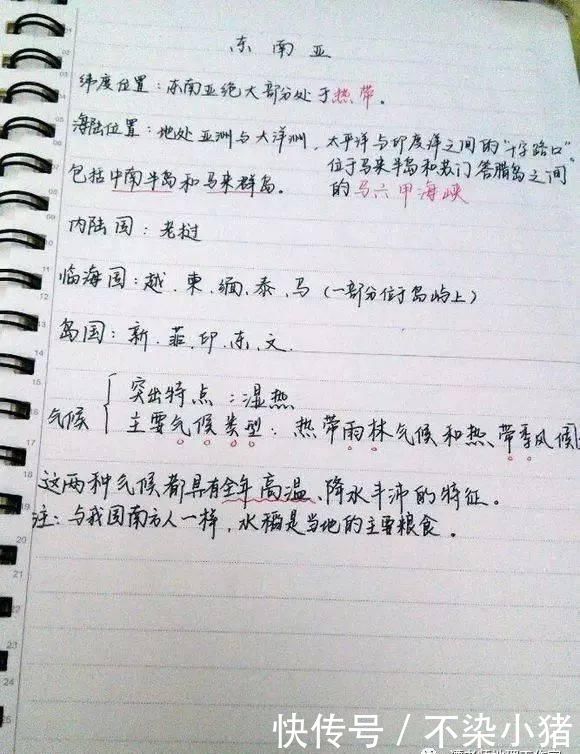 东南亚
纬度位置：东南亚绝大部分处于热带。
海陆位置：地处亚洲与大洋洲，太平洋与印度洋之间的"十字路口"
位于马来半岛和苏门答腊岛之间
的马六甲海峡
包括中南半岛和马来群岛。
内陆国：老挝
临海国：越、柬、缅、泰、马（一部分位于岛屿上）
岛国：新、菲、印、东、文
气候
突出特点：湿热
主要气候类型：热带雨林气候和热带季风候
这两种气候都具有全年高温、降水丰沛的特征。
注：与我国南方人一样，水稻是当地的主要粮食。
快传号 / 不染小猪